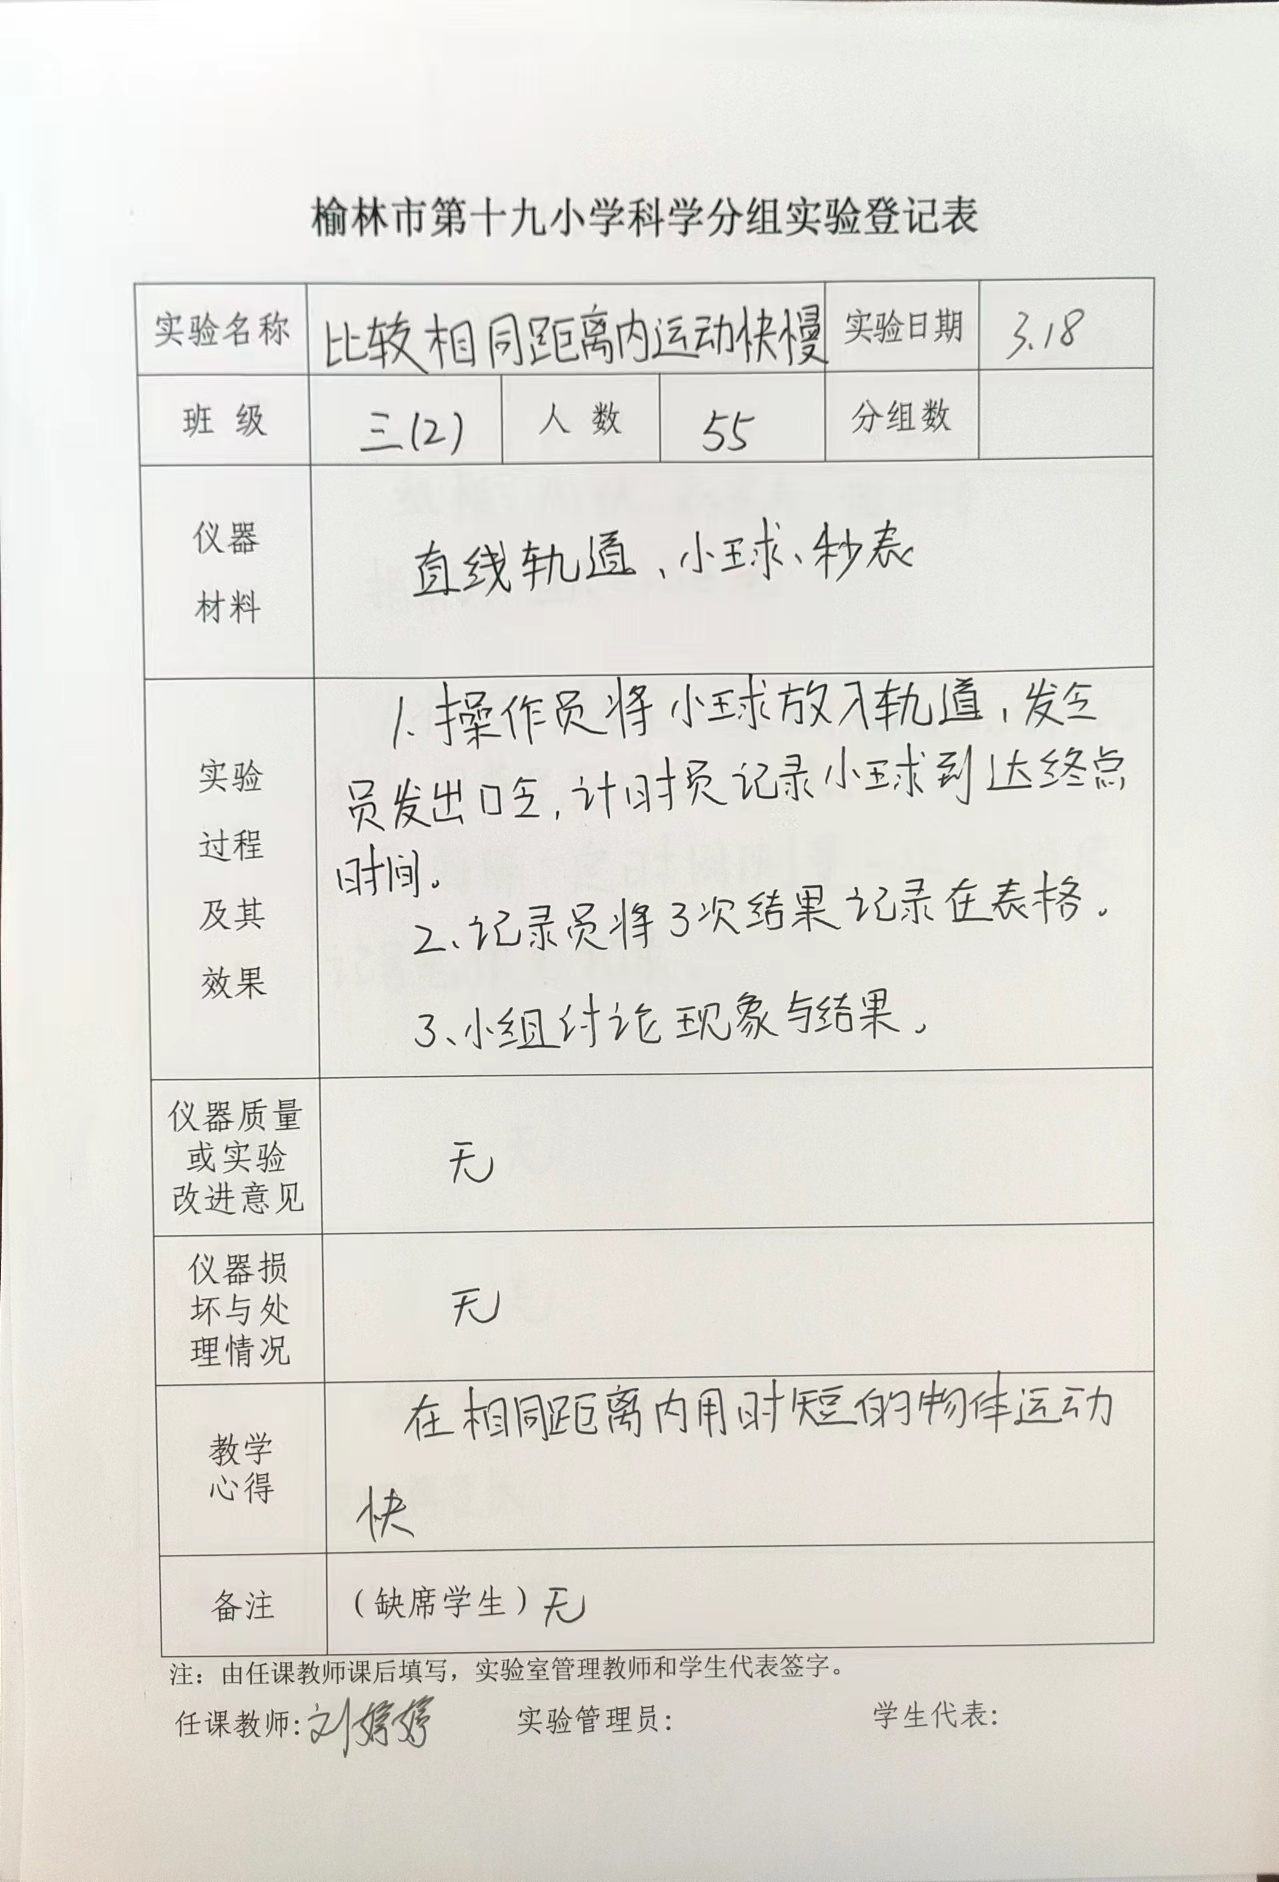 榆林市第十九小学科学分组实验登记表
实验名称 比较相同距离内运动快慢 实验日期 3.18
班 级 三(2) 人 数 55 分组数
仪器
材料
直线轨道、小球、秒表
实验
过程
及其
效果
1.操作员将小球放入轨道,发令
员发出口令,计时员记录小球到达终点
时间。
2、记录员将3次结果记录在表格。
3、小组讨论现象与结果。
仪器质量
或实验
改进意见
无
仪器损
坏与处
理情况
无
教学
心得
在相同距离内用时短的物体运动
快
备注 (缺席学生)无
注:由任课教师课后填写,实验室管理教师和学生代表签字。
任课教师:刘婷婷 实验管理员: 学生代表: